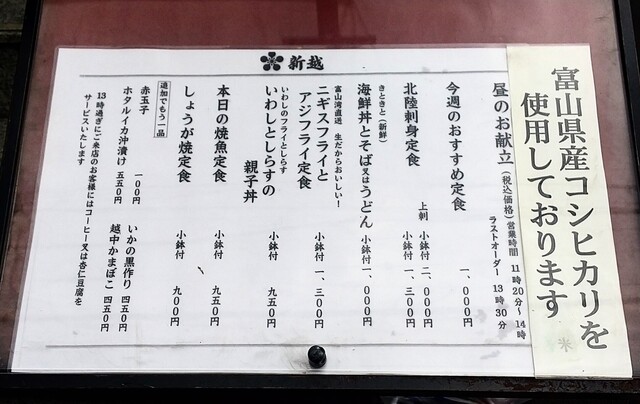 富山県産コシヒカリを
使用しております
米
新越
昼のお献立(税込価格)営業時間 11時20分~14時
ラストオーダー 13時30分
今週のおすすめ定食 一、〇〇〇円
北陸刺身定食 上刺 小鉢付 二、〇〇〇円
小鉢付 一、三〇〇円
きときと(新鮮)
海鮮丼とそば又はうどん 小鉢付 一、〇〇〇円
富山湾直送 生だからおいしい!
ニギスフライと
アジフライ定食 小鉢付 一、三〇〇円
いわしのフライとしらす
いわしとしらすの
親子丼 小鉢付 九五〇円
本日の焼魚定食 小鉢付 九五〇円
しょうが焼定食 小鉢付 九〇〇円
追加でもう一品
赤玉子 一〇〇円
いかの黒作り 四五〇円
ホタルイカ沖漬け 五五〇円
越中かまぼこ 四五〇円
13時過ぎにご来店のお客様にはコーヒー又は杏仁豆腐を
サービスいたします